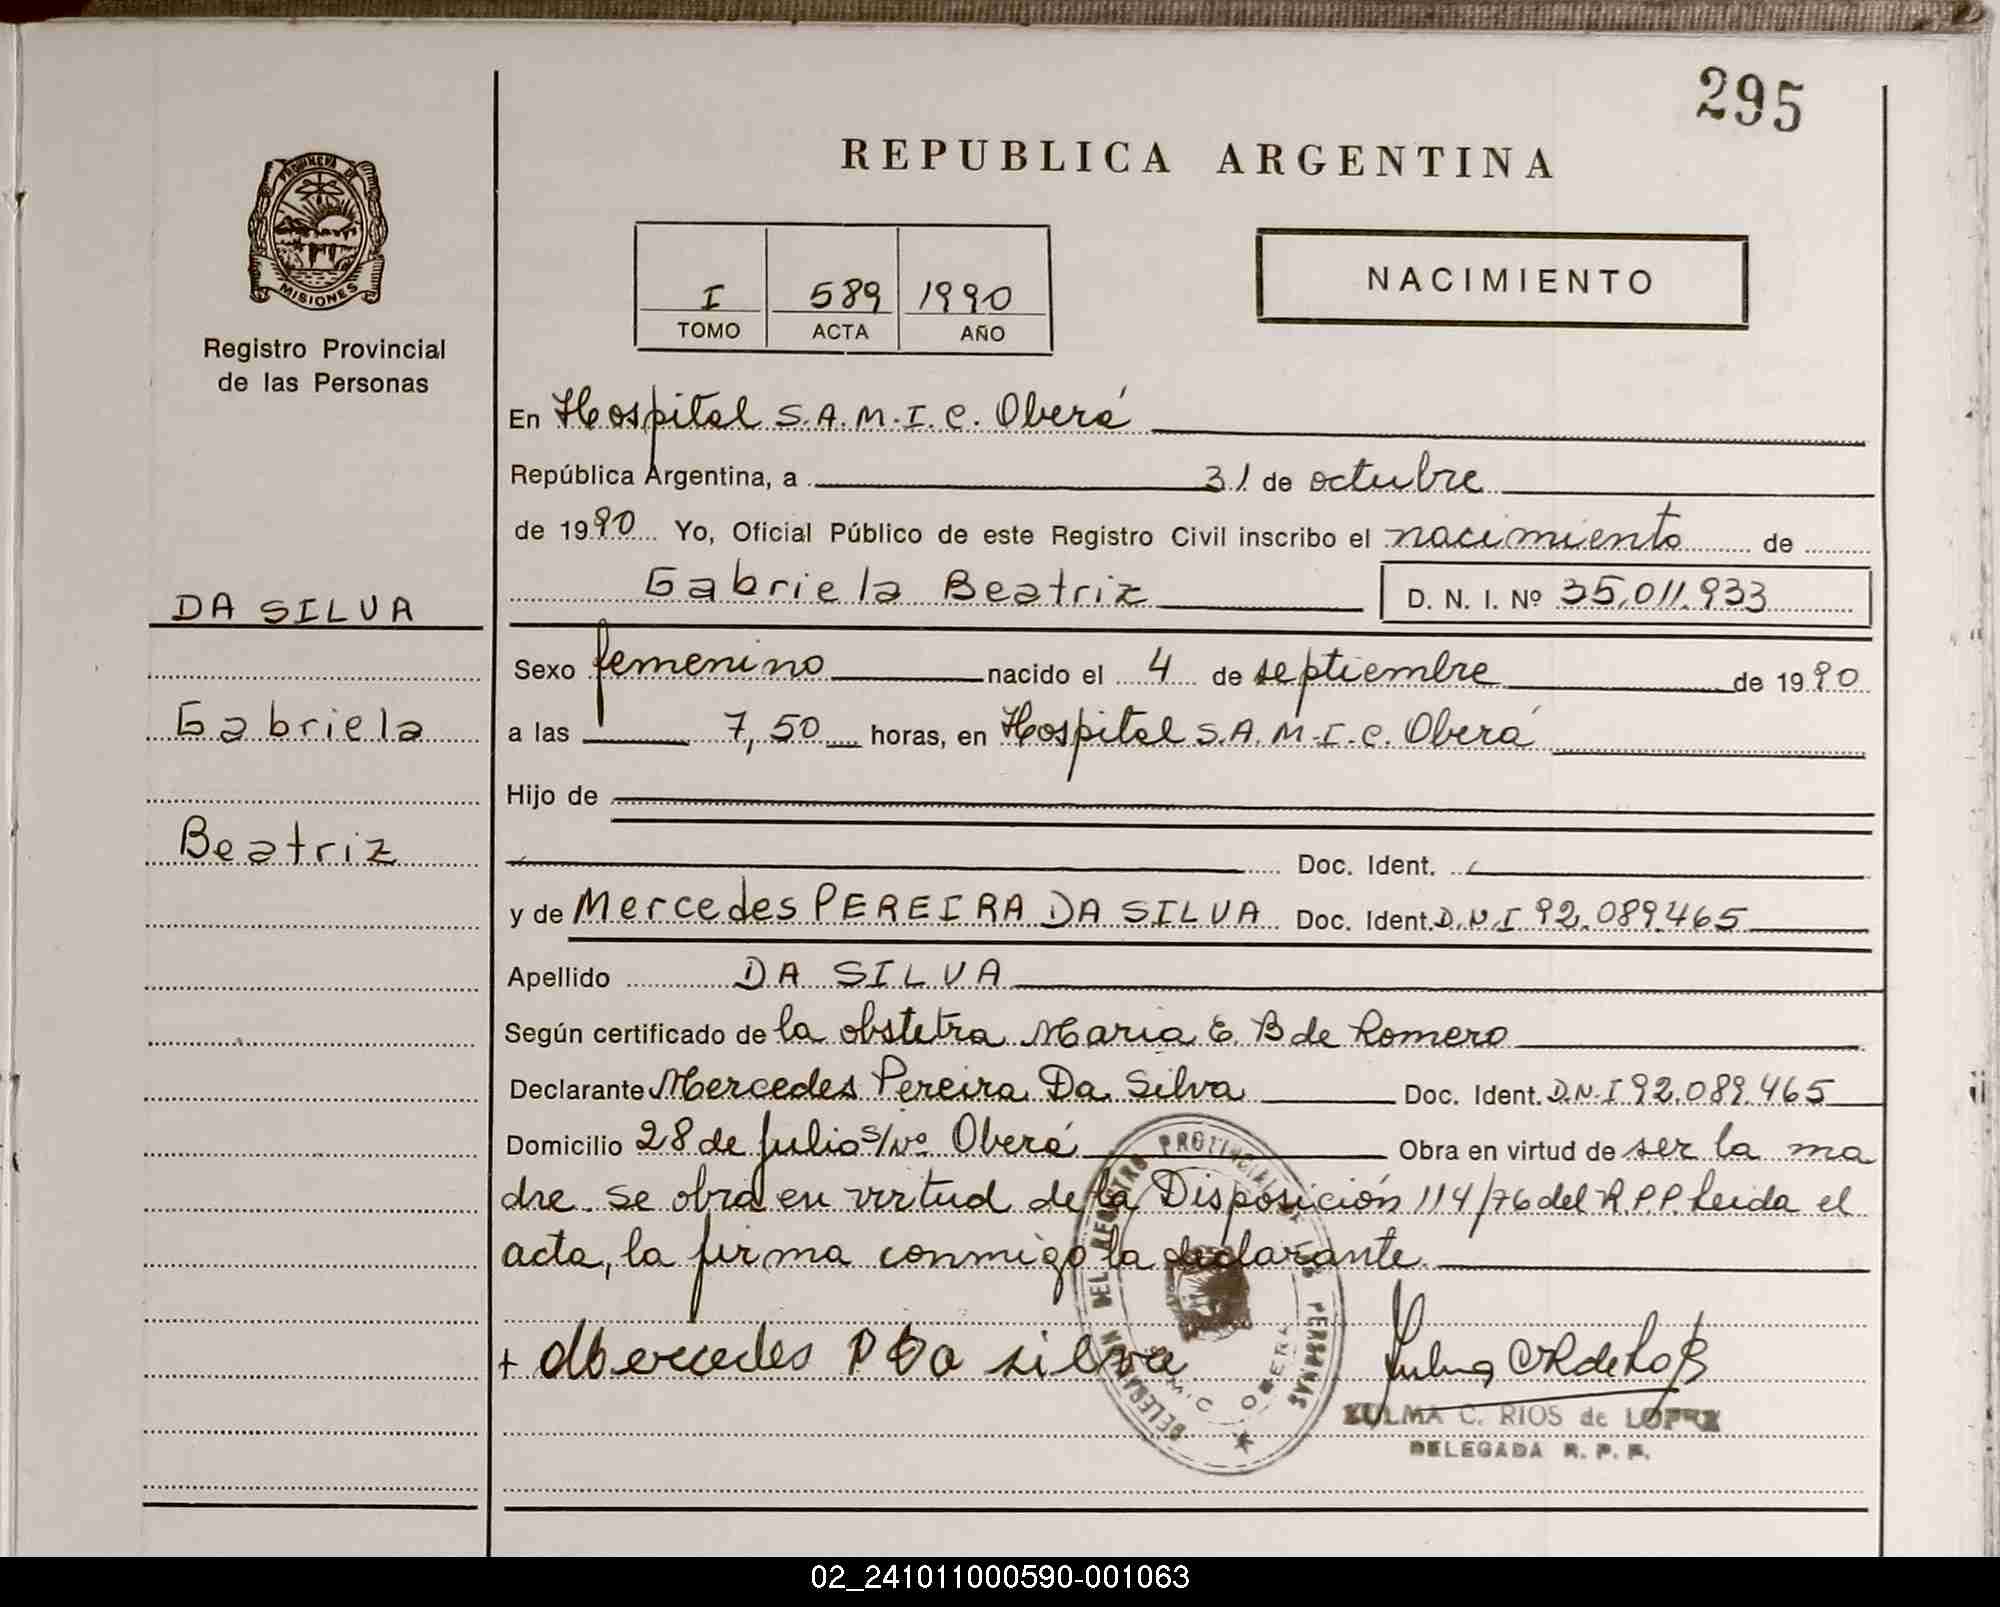 295
REPUBLICA ARGENTINA
PROVINCIA DE
MISIONES
Registro Provincial
de las Personas
I 589 1990
TOMO ACTA AÑO
NACIMIENTO
En Hospital S.A.M.I.C. Oberá
República Argentina, a 31 de octubre
de 1990 Yo, Oficial Público de este Registro Civil inscribo el nacimiento de
Gabriela Beatriz D. N. I. Nº 35.011.933
DA SILVA
Sexo femenino nacido el 4 de septiembre de 1990
Gabriela
a las 7,50 horas, en Hospital S.A.M.I.C. Oberá
Hijo de
Beatriz
Doc. Ident.
y de Mercedes PEREIRA DA SILVA Doc. Ident. D.N.I 92.089.465
Apellido DA SILVA
Según certificado de la obstetra Maria E. B de Romero
Declarante Mercedes Pereira Da Silva Doc. Ident. D.N.I 92.089.465
Domicilio 28 de Julio s/nº Oberá Obra en virtud de ser la ma
dre. Se obra en virtud de la Disposición 114/76 del R.P.P. Leida el
acta, la firma conmigo la declarante.
+ Mercedes P Da silva
DELEGACION DEL REGISTRO PROVINCIAL DE LAS PERSONAS
OBERA
ZULMA C. RIOS de LOPEZ
DELEGADA R. P. P.
02_241011000590-001063